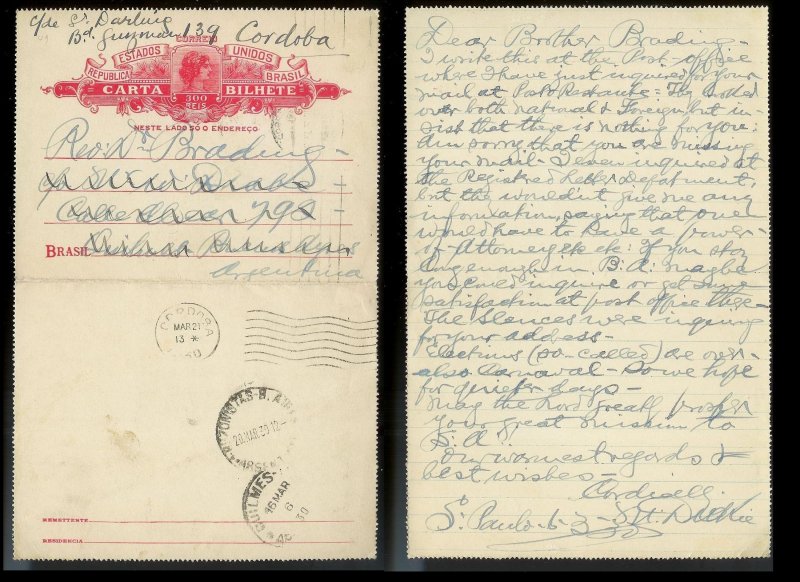 c/de Sr. Darling
Bd. Guzman 139 Cordoba
CORREIO
ESTADOS UNIDOS
REPUBLICA BRASIL
CARTA BILHETE
300
REIS
NESTE LADO SÓ O ENDEREÇO
Brading -
798
BRASIL
Argentina
CORDOBA
MAR 21
13 *
30
28 MAR. 30 12
QUILMES
16 MAR
6
30
REMETTENTE
RESIDENCIA
Dear Brother Brading -
I write this at the Post office
where I have just inquired for your
mail at Posta Restante - The looked
over both national & Foreign but in-
sist that there is nothing for you.
Am sorry that you are missing
your mail - I even inquired at
the Registered Letter Department,
but they wouldn't give me any
information, saying that one
would have to have a power-
of-Attorney etc etc. If you stay
long enough in B.A. maybe
you could inquire or get some
satisfaction at post office there -
The were inquiring
for your address -
Elections (so-called) are over -
also Carnaval - so we hope
for quieter days -
May the Lord greatly prosper
your great mission to
B.A.
Our warmest regards &
best wishes -
Cordially
S. Paulo - 6-3-